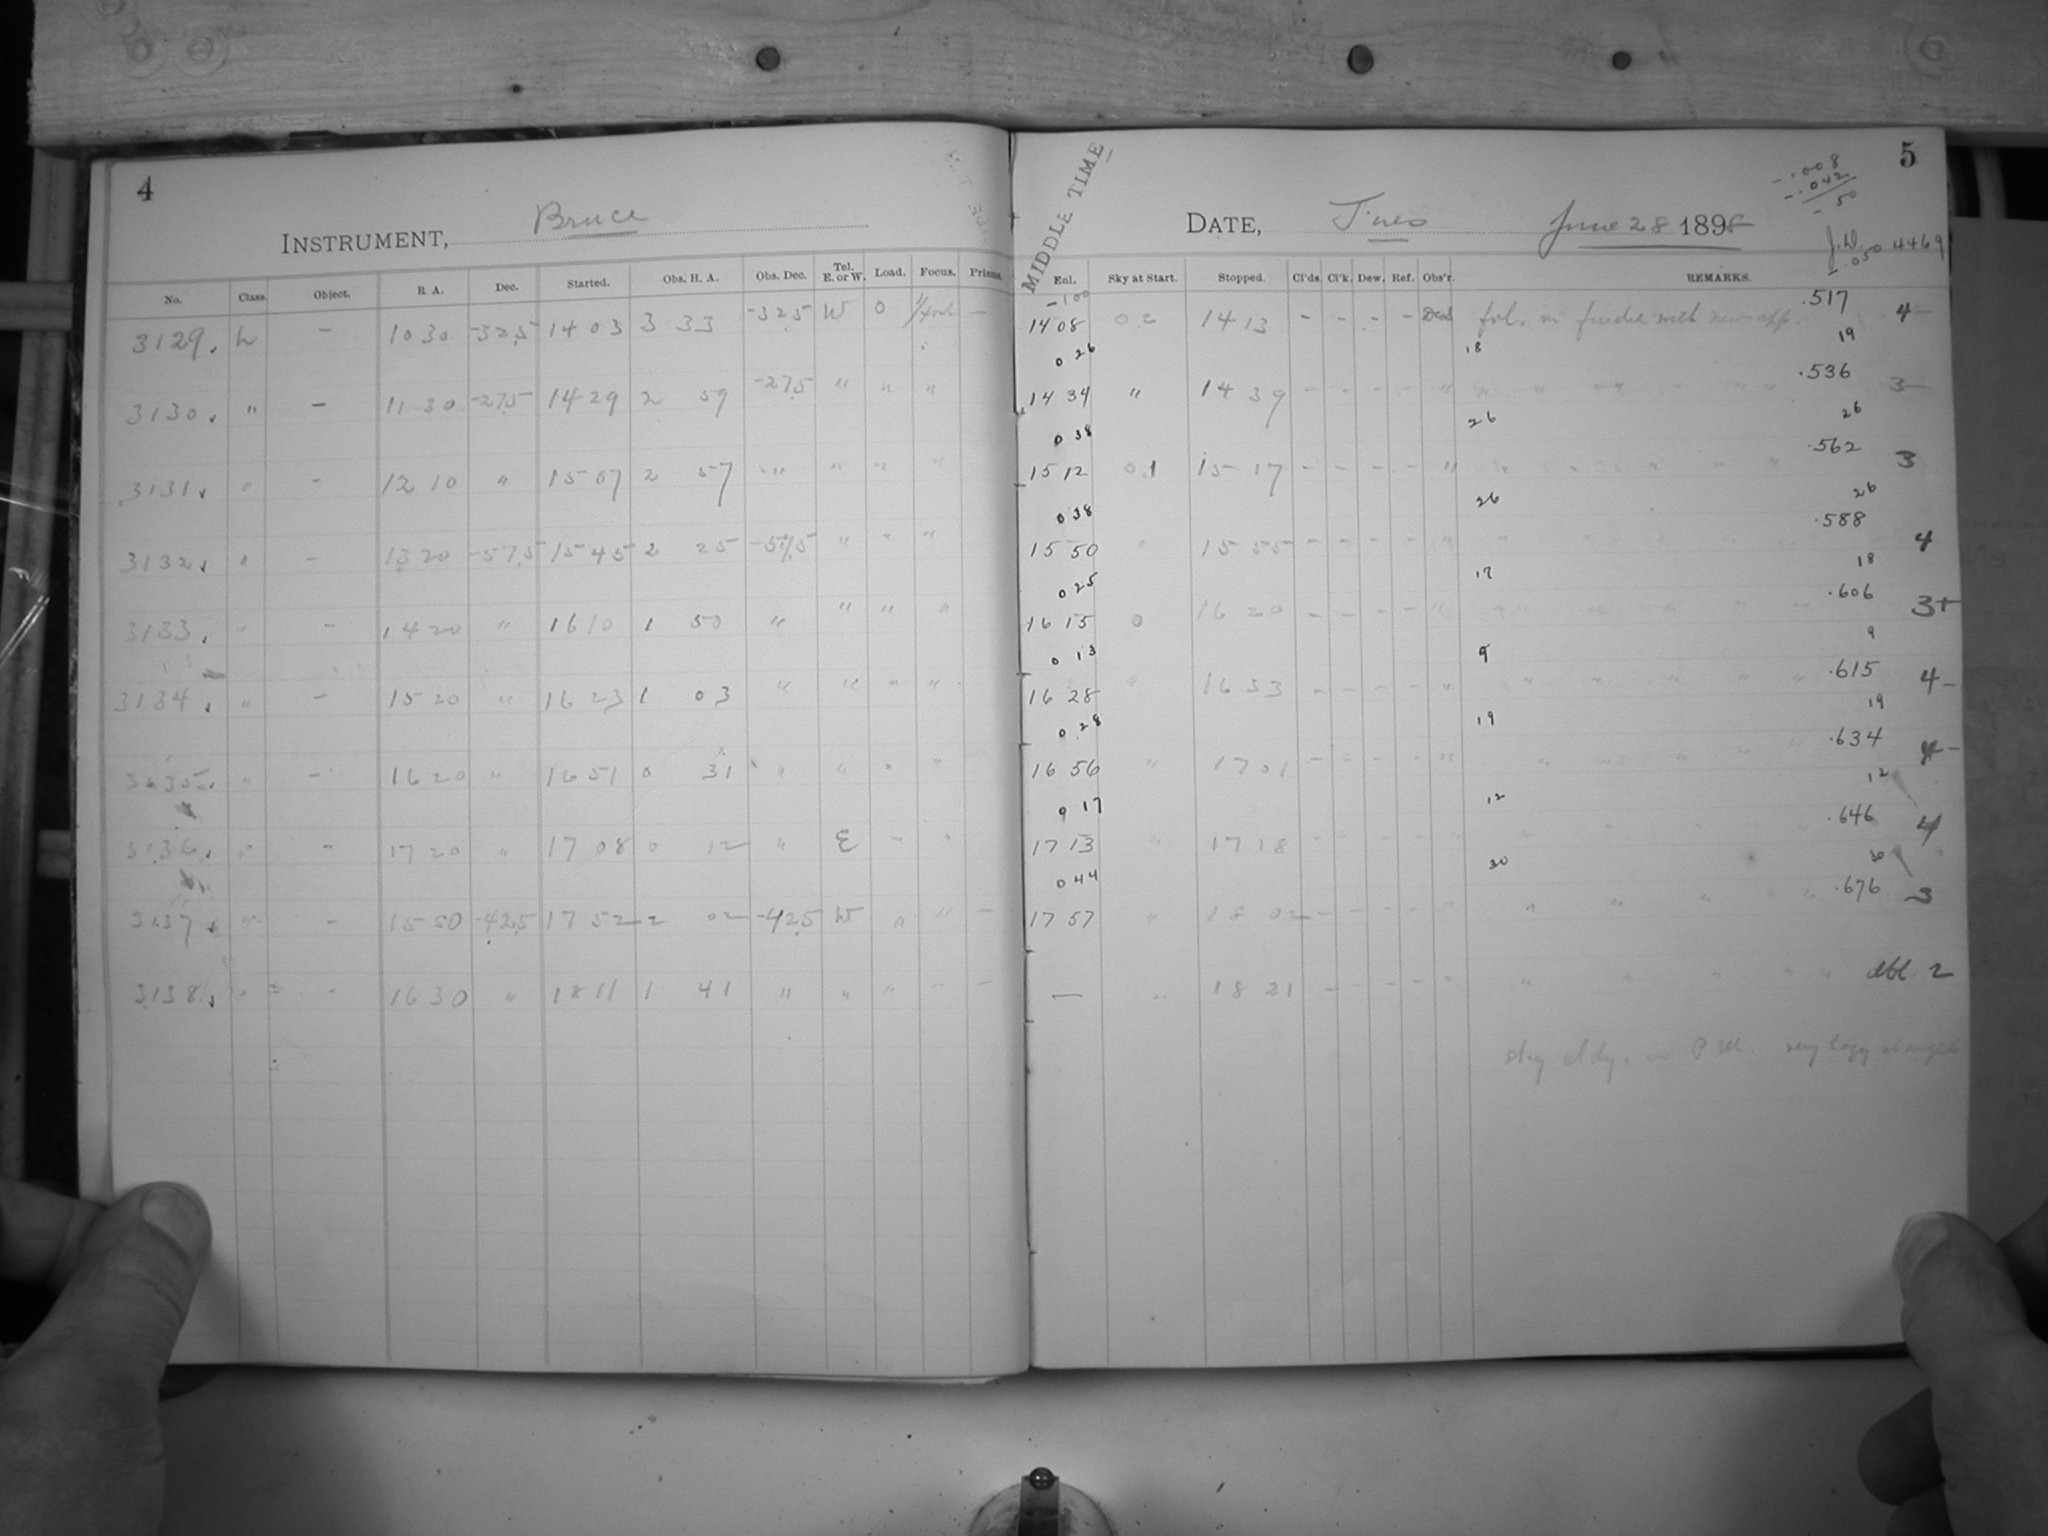 4
INSTRUMENT, Bruce
No. Class. Object. R. A. Dec. Started. Obs. H. A. Obs. Dec. Tel. E. or W. Load. Focus. Prisms.
3129. L - 10 30 -32.5 14 03 3 33 -32.5 W 0 -
3130. " - 11 30 -27.5 14 29 2 59 -27.5 " " "
3131. " - 12 10 " 15 07 2 57 " " " "
3132. " - 13 20 -57.5 15 45 2 25 -57.5 " " "
3133. " - 14 20 " 16 10 1 50 " " " "
3134. " - 15 20 " 16 23 1 03 " " " "
3135. " - 16 20 " 16 51 0 31 " " " "
3136. " - 17 20 " 17 08 0 12 " E " "
3137. " - 15 50 -42.5 17 52 2 02 -42.5 W " " -
3138. " - 16 30 " 18 11 1 41 " " " " -
MIDDLE TIME
5
DATE, Tues June 28 1898
-.008
-.042
-50
J.D.
.050 4469
Enl. Sky at Start. Stopped. Cl'ds. Cl'k. Dew. Ref. Obs'r. REMARKS.
-100
14 08 02 14 13 - - - - fol. in finder with new app. .517 4-
0 26 18 19
14 34 " 14 39 - - - - " " " " " " .536 3-
0 38 26 26
15 12 01 15 17 - - - - " " " " " " .562 3
0 38 26 26
15 50 " 15 55 - - - - " " " " " " .588 4
0 25 17 18
16 15 0 16 20 - - - - " " " " " " .606 3+
0 13 9 9
16 28 " 16 33 - - - - " " " " " " .615 4-
0 28 19 19
16 56 " 17 01 - - - - " " " " " " .634 4-
0 17 12 12
17 13 " 17 18 - - - - " " " " " .646 4
0 44 30 30
17 57 " 18 02 - - - - " " " " " " .676 3
— " 18 21 - - - - " " " " " " dbl. 2
sky cldy. in P.M. very hazy at